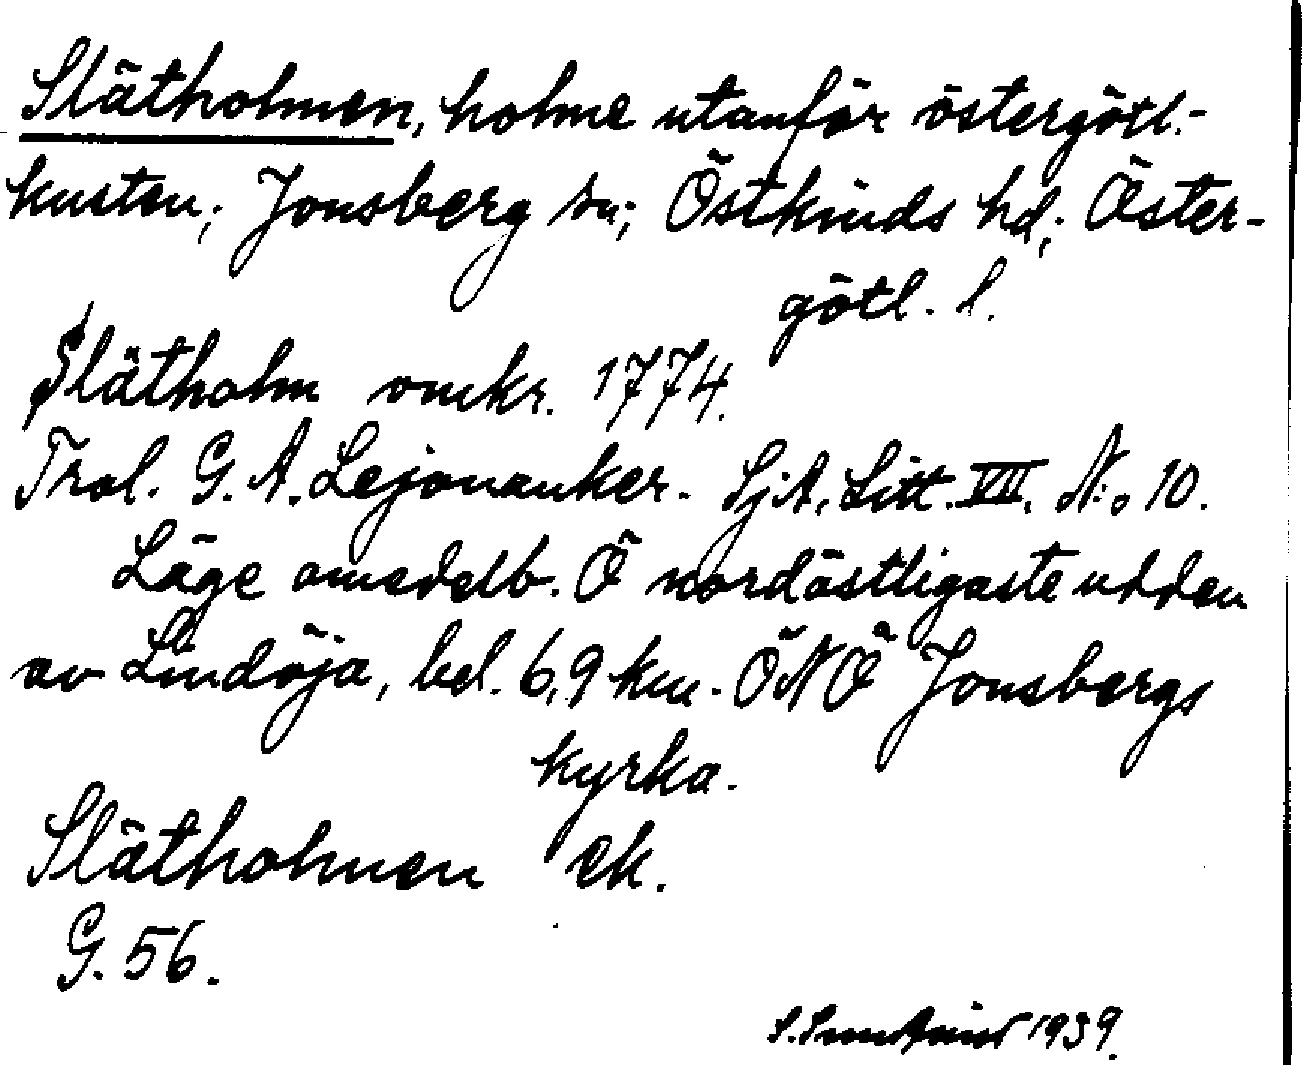 Slätholmen, holme utanför östergötl.-
kusten; Jonsberg sn; Östkinds hd; Öster-
götl. l.
Slätholm omkr. 1774.
Trol. G. A. Lejonanker. SjA. Litt. VII. N:o 10.
Läge omedelb. Ö nordöstligaste udden
av Lindöja, bel. 6,9 km. ÖNÖ Jonsbergs
kyrka.
Slätholmen ek.
G. 56.
S. 1939.